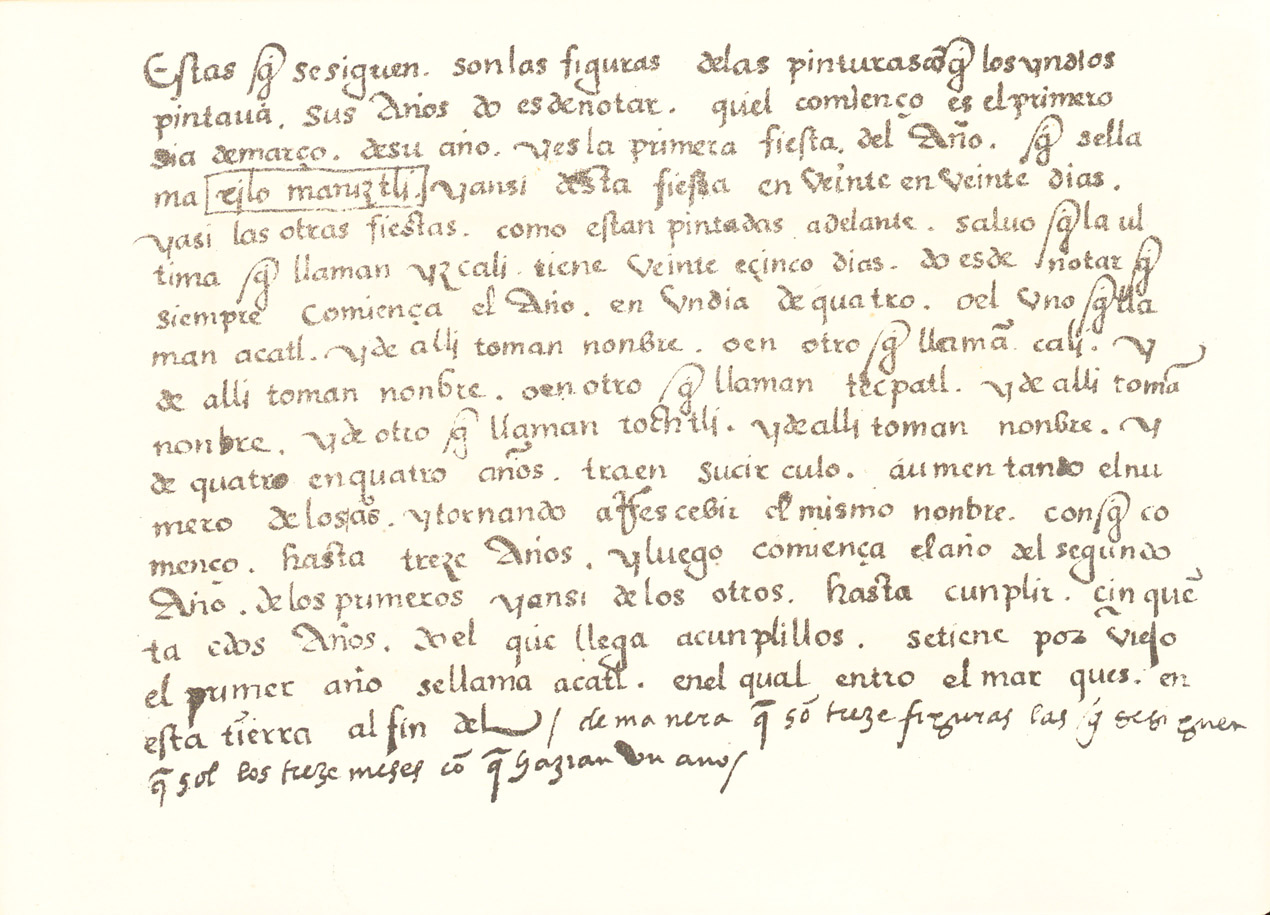 Estas q̃ sesiguen. sonlas figuras delas pinturas cõ q̃ los yndios
pintauā. sus Años do esdenotar. quel comienço es elprimero
dia demarço. desu año. yesla primera fiesta. del Año. q̃ sella
ma xilo maniztli. yansi desta fiesta en Veinte en Veinte dias.
yasi las otras fiestas. como estan pintadas adelante. saluo q̃ la ul
tima q̃ llaman yzcali. tiene Veinte eçinco dias. do esde notar q̃
siempre Comiença el Año. en Vndia de quatro. oel Vno q̃ lla
man acatl. yde alli toman nonbre. oen otro q̃ llamā cali. y
de alli toman nonbre. oen otro q̃ llaman tecpatl. yde alli tomā
nonbre. yde otro q̃ llaman tochtli. ydealli toman nonbre. y
de quatro enquatro años. traen sucir culo. aumen tando elnu
mero delosãs. ytornando arrescebir el mismo nonbre. conq̃ co
menço. hasta treze Años. yluego comiença elaño del segundo
Año. delos primeros yansi delos otros. hasta cunplir. cin quē
ta edos Años. doel que llega acunplillos. setiene por Viejo
el primer año sellama acatl. enel qual entro el mar ques. en
esta tierra al fin del / de ma nera q̃ sō treze figuras las q̃ sesi guen
q̃ sol los treze meses cō q̃ hazian Vn año/